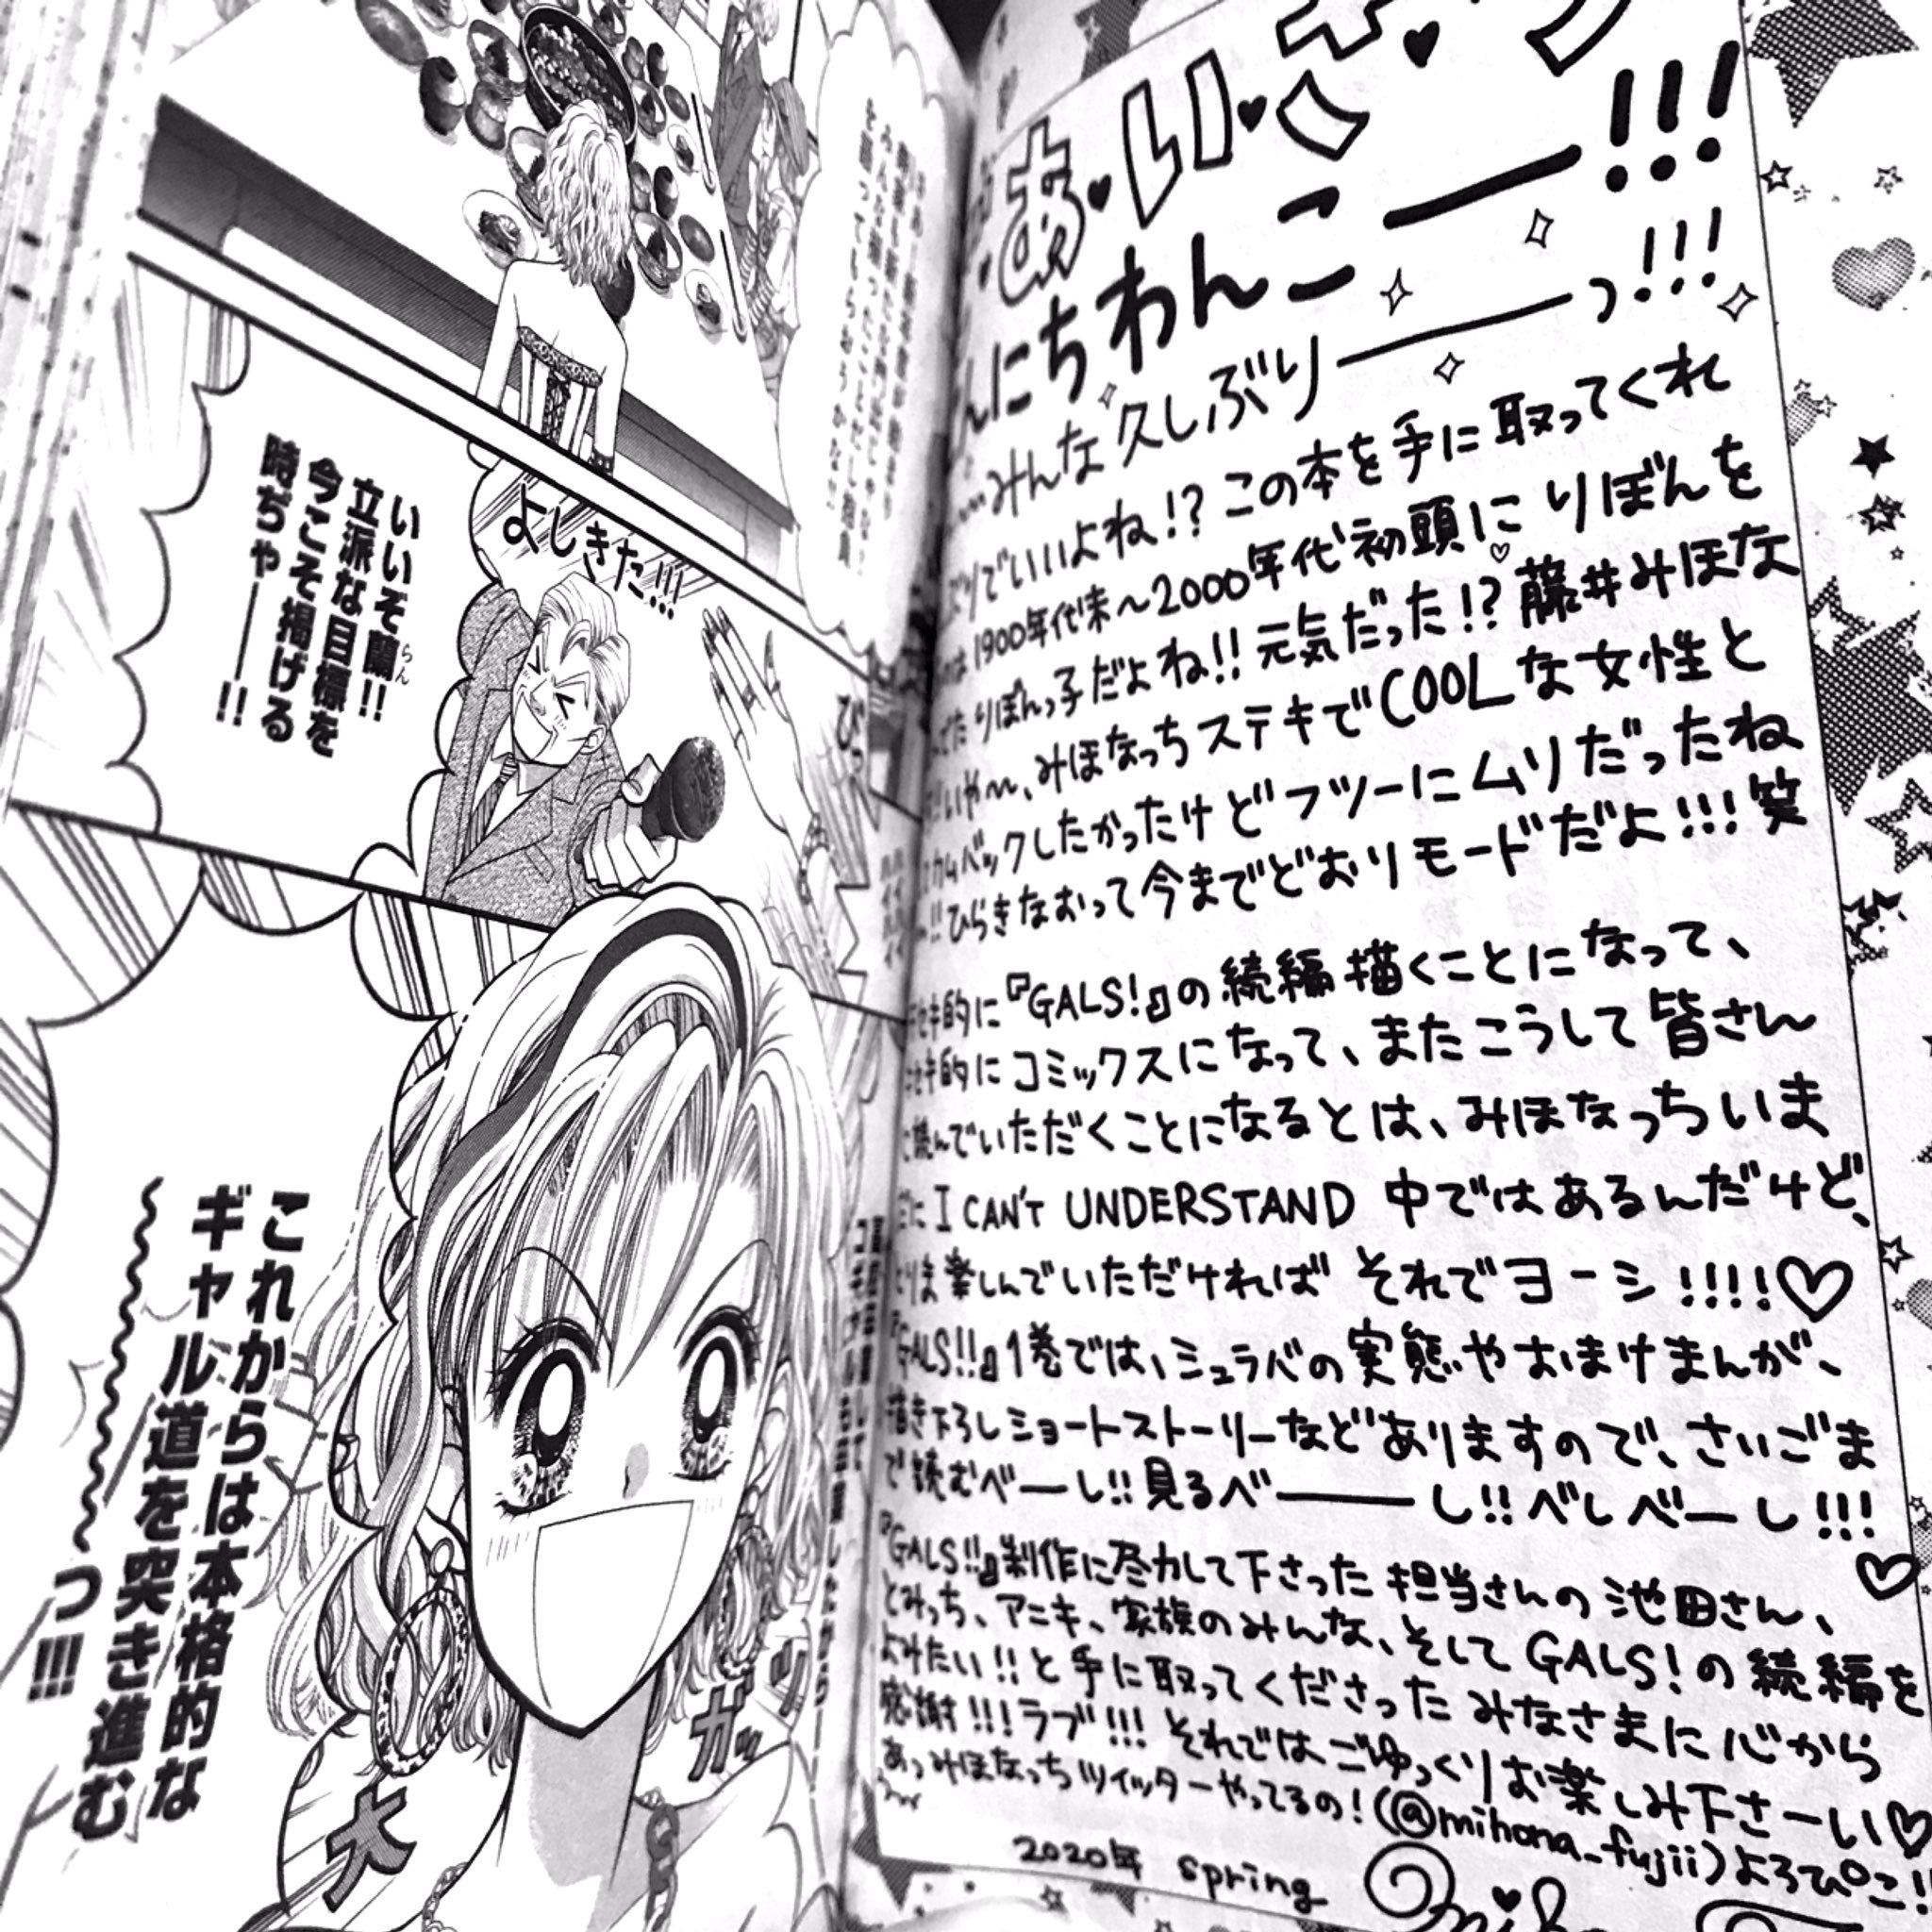 あ・い・さ・つ
んにちわんこーー!!!
…みんな久しぶりーーーっ!!!
ぶりでいいよね!?この本を手に取ってくれ
は1900年代末〜2000年代初頭にりぼんを
でた りぼんっ子だよね!!元気だった!?藤井みほな
いや〜、みほなっちステキでCOOLな女性と
カムバックしたかったけどフツーにムリだったね
!!ひらきなおって今までどおりモードだよ!!!笑
セキ的に『GALS!』の続編描くことになって、
セキ的にコミックスになって、またこうして皆さん
に読んでいただくことになるとは、みほなっちいま
だにI CAN'T UNDERSTAND 中ではあるんだけど、
とりま楽しんでいただければ それでヨーシ!!!!♡
『GALS!!』1巻では、シュラバの実態やおまけまんが、
描き下ろしショートストーリーなどありますので、さいごま
で読むべーし!!見るべーーーし!!べしべーし!!!
『GALS!!』制作に尽力して下さった担当さんの池田さん、
とみっち、アニキ、家族のみんな、そしてGALS!の続編を
よみたい!!と手に取ってくださったみなさまに心から
感謝!!!ラブ!!!それではごゆっくりお楽しみ下さーい♡
あっみほなっちツイッターやってるの!(@mihona_fujii)よろぴこ!!
2020年 spring
よしきた!!!
いいぞ蘭!!
らん
立派な目標を
今こそ掲げる
時ぢゃーー!!
びっ
これからは本格的な
ギャル道を突き進む
〜〜〜っ!!!
ガッツ
大